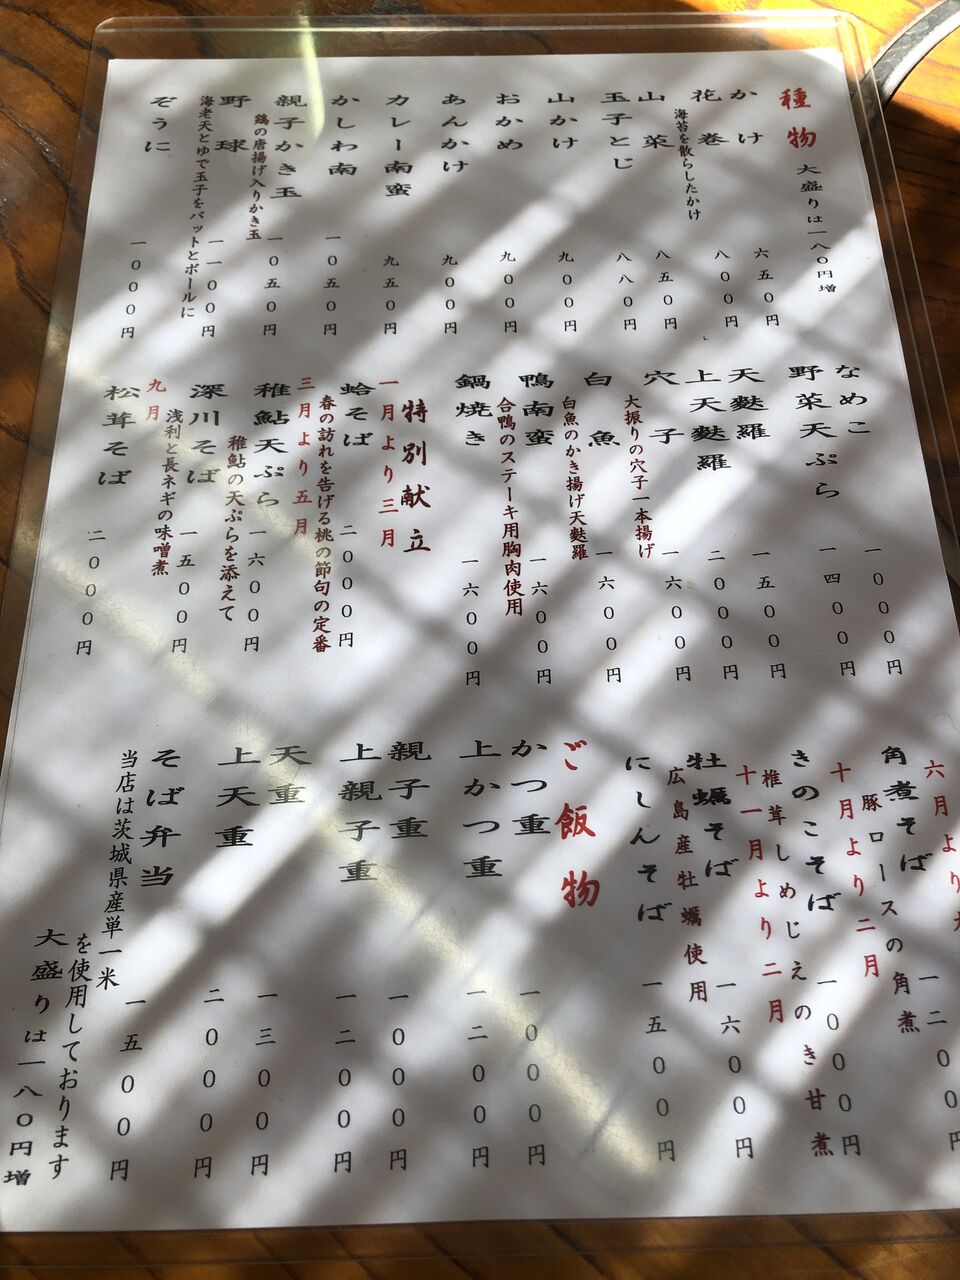 種物 大盛りは一八〇円増
かけ 六五〇円
花巻 八〇〇円
海苔を散らしたかけ
山菜 八五〇円
玉子とじ 八八〇円
山かけ 九〇〇円
おかめ 九〇〇円
あんかけ 九〇〇円
カレー南蛮 九五〇円
かしわ南 一〇五〇円
親子かき玉 一〇五〇円
鶏の唐揚げ入りかき玉
野球 一一〇〇円
海老天とゆで玉子をバットとボールに
ぞうに 一〇〇〇円
なめこ 一〇〇〇円
野菜天ぷら 一四〇〇円
天麩羅 一五〇〇円
上天麩羅 二〇〇〇円
穴子 一六〇〇円
大振りの穴子一本揚げ
白魚 一六〇〇円
白魚のかき揚げ天麩羅
鴨南蛮 一六〇〇円
合鴨のステーキ用胸肉使用
鍋焼き 一六〇〇円
特別献立
一月より三月
蛤そば 二〇〇〇円
春の訪れを告げる桃の節句の定番
三月より五月
稚鮎天ぷら 一六〇〇円
稚鮎の天ぷらを添えて
深川そば 一五〇〇円
浅利と長ネギの味噌煮
九月
松茸そば 二〇〇〇円
六月より
角煮そば 一二〇〇円
豚ロースの角煮
十月より二月
きのこそば 一〇〇〇円
椎茸しめじえのき甘煮
十一月より二月
牡蠣そば 一六〇〇円
広島産牡蠣使用
にしんそば 一五〇〇円
ご飯物
かつ重 一〇〇〇円
上かつ重 一二〇〇円
親子重 一〇〇〇円
上親子重 一二〇〇円
天重 一三〇〇円
上天重 二〇〇〇円
そば弁当 一五〇〇円
当店は茨城県産単一米
を使用しております
大盛りは一八〇円増